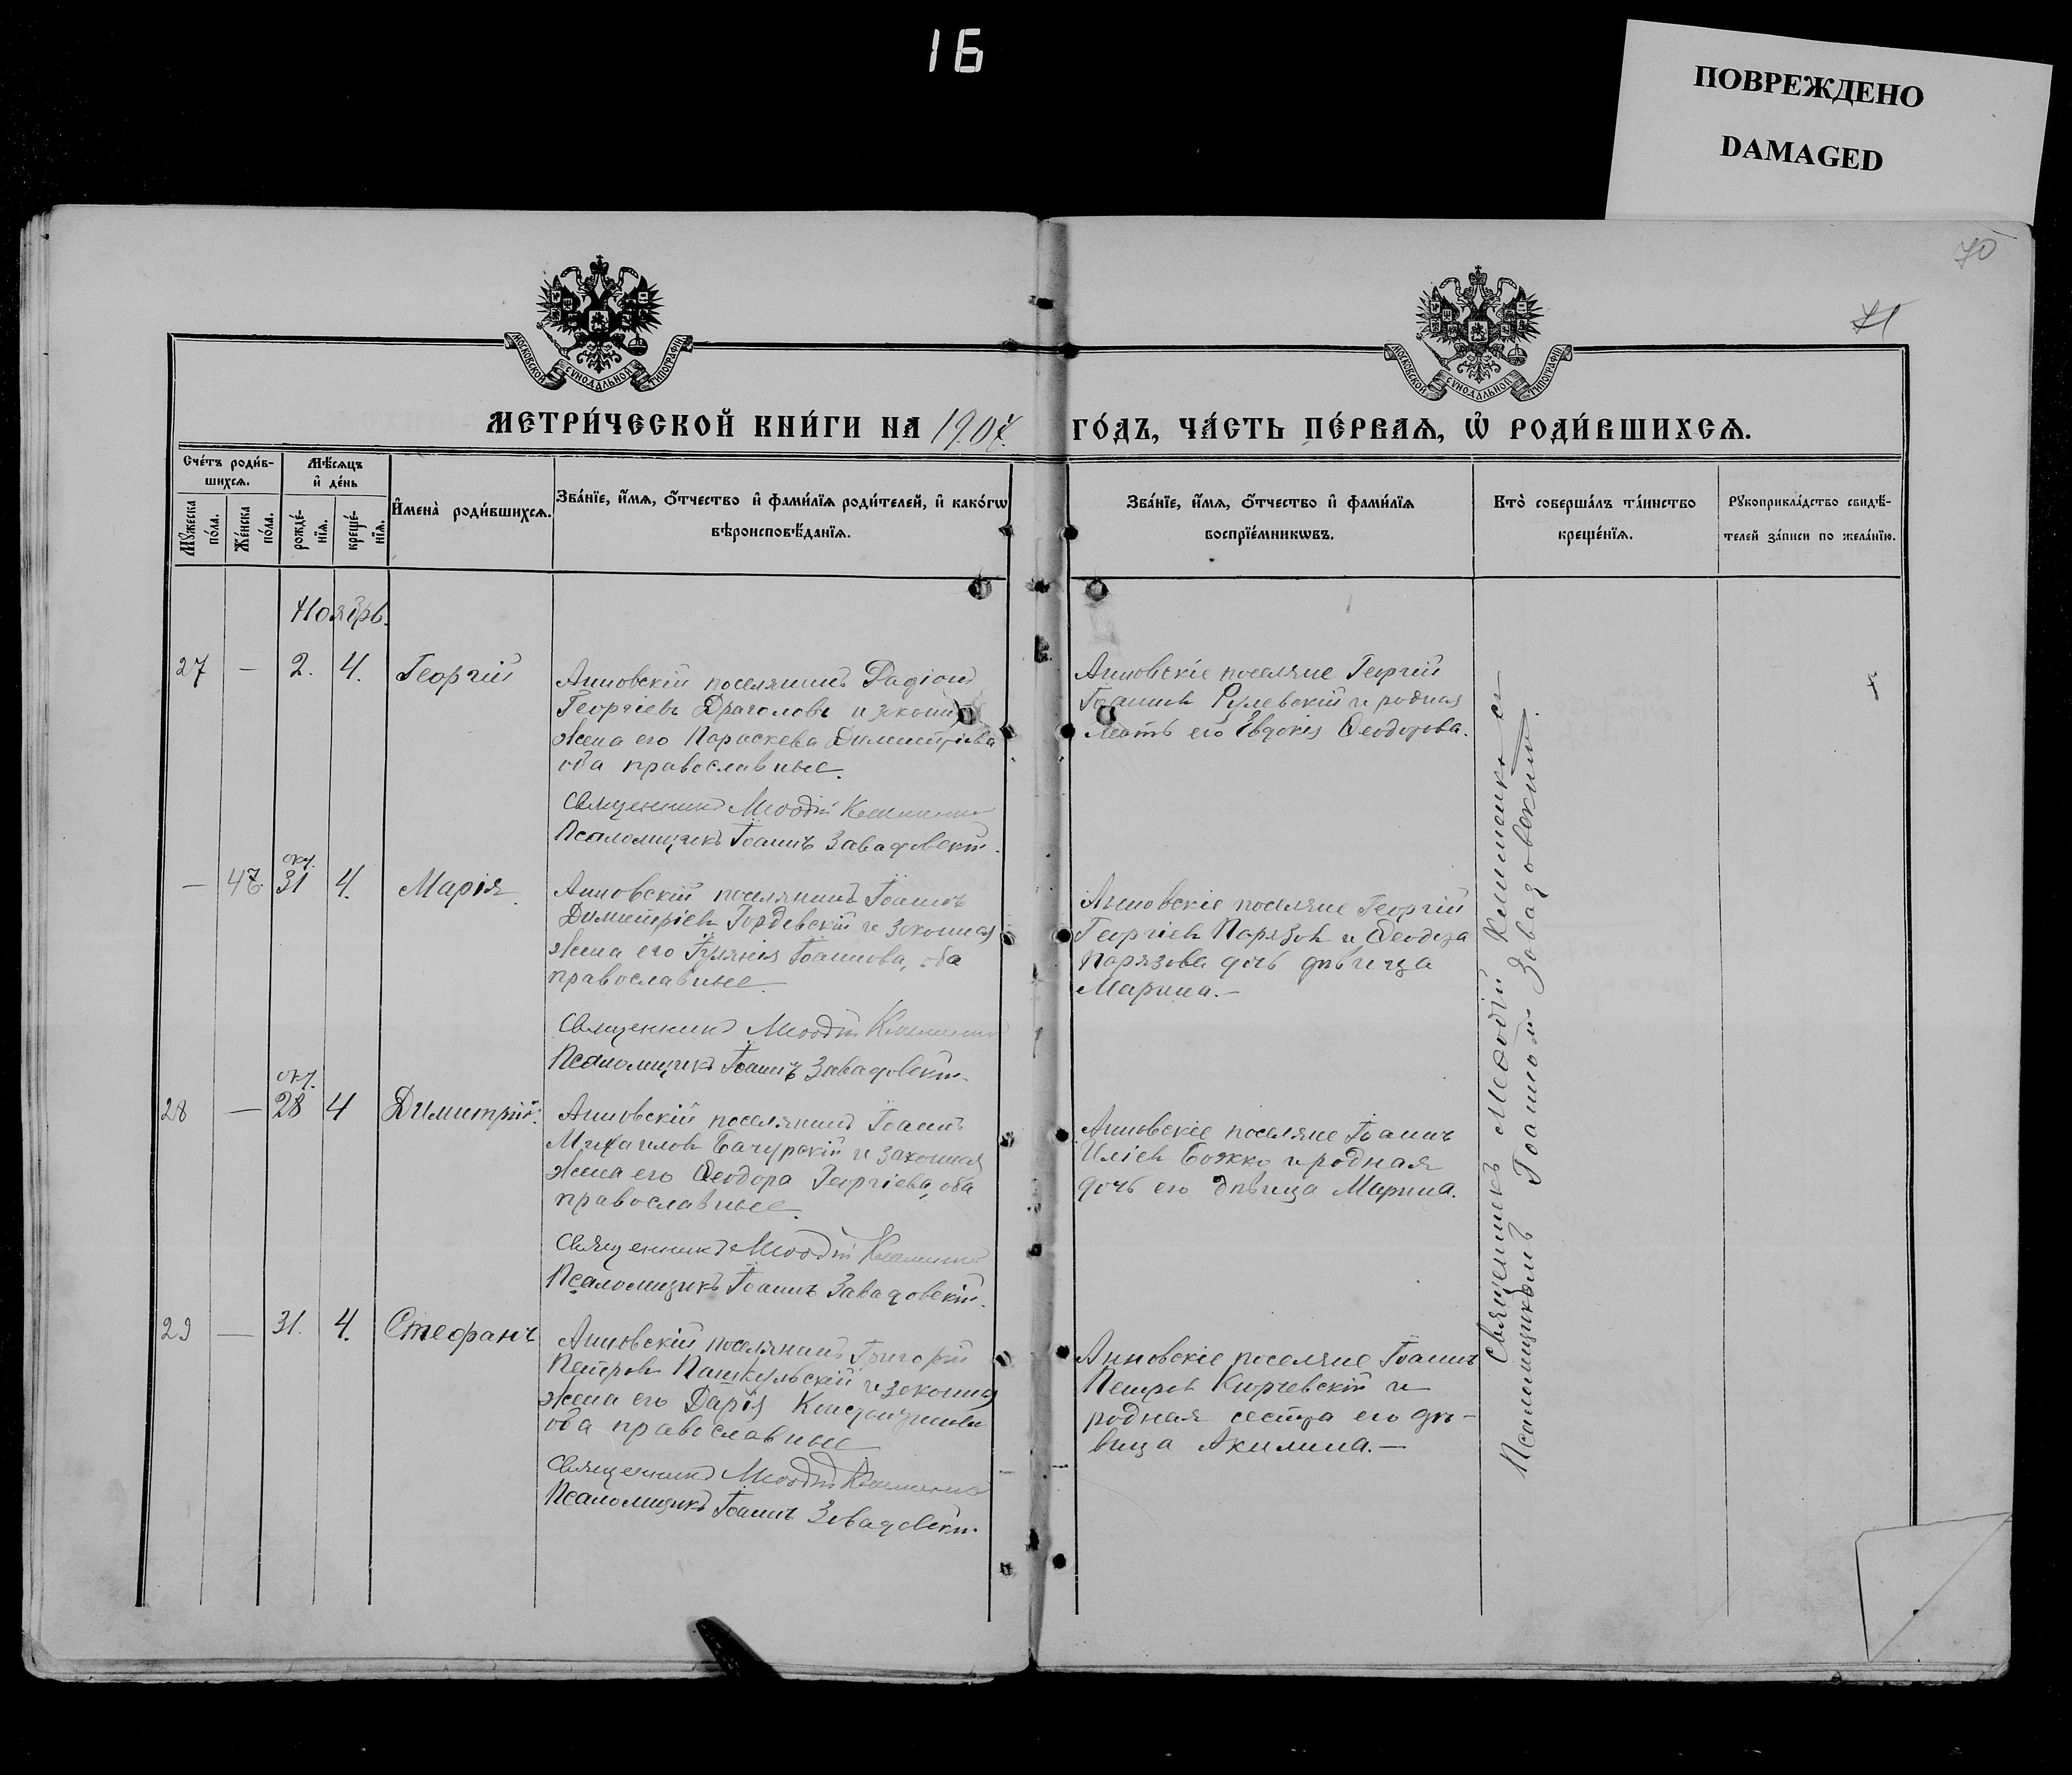 16
ПОВРЕЖДЕНО
DAMAGED
70
71
МОСКОВСКОЙ СѴНОДАЛЬНОЙ ТИПОГРАФІИ
МОСКОВСКОЙ СѴНОДАЛЬНОЙ ТИПОГРАФІИ
МЕТРИ́ЧЕСКОЙ КНИ́ГИ НА 1907. ГО́ДЪ, ЧА́СТЬ ПЕ́РВАѦ, Ѡ҆ РОДИ́ВШИХСѦ.
Сче́тъ роди́в-
шихсѧ.
Мꙋжеска
по́ла.
Же́нска
по́ла.
Мѣ́сѧцъ
и҆ де́нь
рожде́-
нїѧ.
креще́-
нїѧ.
И҆мена̀ роди́вшихсѧ.
Зва́нїе, и҆́мѧ, ѻ҆́тчество и҆ фами́лїѧ роди́телей, и҆ како́гѡ
вѣроисповѣ́данїѧ.
Зва́нїе, и҆́мѧ, ѻ҆́тчество и҆ фами́лїѧ
воспрїе́мникѡвъ.
Кто̀ соверша́лъ та́инство
креще́нїѧ.
Рꙋкоприкла́дство свидѣ́-
телей за́писи по жела́нїю.
Ноябрь.
27 — 2. 4. Георгій
Анновскій поселянинъ Радіонъ
Георгіевъ Драголовъ и законная
жена его Параскева Димитріева
оба православные.
Священникъ Меѳодій Клименко
Псаломщикъ Іоаннъ Завадовскій.
Анновскіе поселяне Георгій
Іоанновъ Рулевскій и родная
мать его Евдокія Ѳеодорова.
— 47 окт. 31 4. Марія.
Анновскій поселянинъ Іоаннъ
Димитріевъ и законная
жена его Іулянія Іоаннова, оба
православные.
Священникъ Меѳодій Клименко
Псаломщикъ Іоаннъ Завадовскій.
Анновскіе поселяне Георгій
Георгіевъ Парязов и Ѳеодора
Парязова дочь дѣвица
Марина.—
28 — окт. 28 4 Димитрій.
Анновскій поселянинъ Іоаннъ
Михаиловъ Бачурскій и законная
жена его Ѳеодора Георгіева, оба
православные.
Священникъ Меѳодій Клименко
Псаломщикъ Іоаннъ Завадовскій.
Анновскіе поселяне Іоаннъ
Иліевъ Божко и родная
дочь его дѣвица Марина.
29 — 31. 4. Стефанъ
Анновскій поселянинъ Григорій
Петровъ Пашкульскій и законная
жена его Дарія Константинова
оба православные
Священникъ Меѳодій Клименко
Псаломщикъ Іоаннъ Завадовскій.
Анновскіе поселяне Іоаннъ
Петровъ Кирчевскій и
родная сестра его дѣ-
вица Акилина.—
Священникъ Меѳодій Клименко съ
Псаломщикомъ Іоанномъ Завадовскимъ.